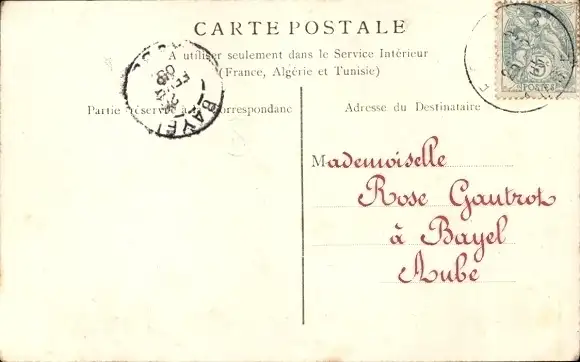 CARTE POSTALE
A utiliser seulement dans le Service Intérieur
(France, Algérie et Tunisie)
Partie réservée à la correspondance
Adresse du Destinataire
Mademoiselle
Rose Gautrot
à Bayel
Aube
BAYEL
POSTES